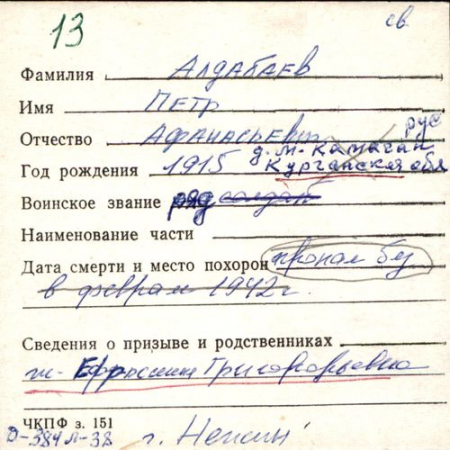 13 св.
Фамилия Алдабаев
Имя Петр
Отчество Афанасьевич рус
д. М-Камаган
Год рождения 1915 Курганская обл
Воинское звание ряд солдат
Наименование части
Дата смерти и место похорон пропал без
в феврале 1942г.
Сведения о призыве и родственниках
ж- Ефросиния Григорьевна
ЧКПФ з. 151
О-384 л-38 г.